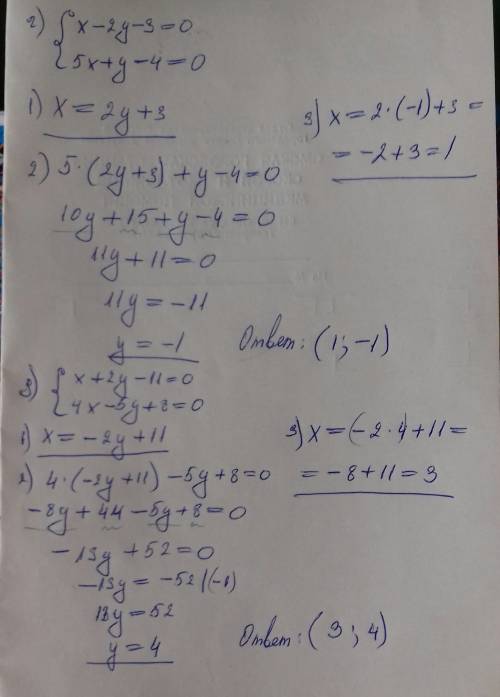 2) { x-2y-3=0
5x+y-4=0
1) x = 2y+3
2) 5·(2y+3)+y-4=0
10y+15+y-4=0
11y+11=0
11y=-11
y=-1
3) x=2·(-1)+3=
=-2+3=1
Ответ: (1;-1)
3) { x+2y-11=0
4x-5y+8=0
1) x=-2y+11
2) 4·(-2y+11)-5y+8=0
-8y+44-5y+8=0
-13y+52=0
-13y=-52 |(-1)
13y=52
y=4
3) x=(-2·4+11=
=-8+11=3
Ответ: (3;4)